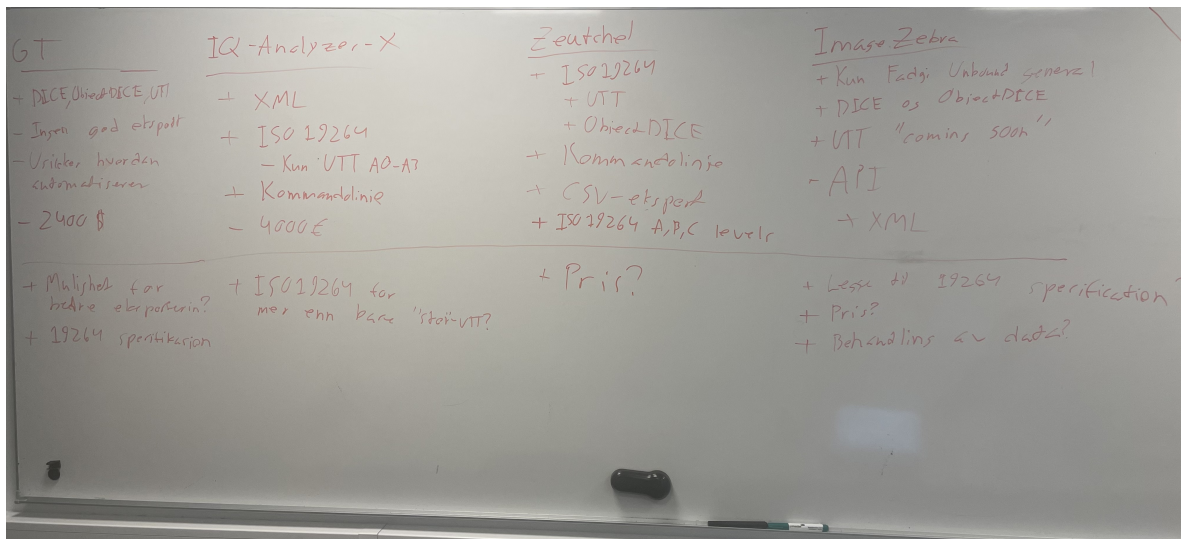 GT
+ DICE, ObjectDICE, UTT
- Ingen god eksport
- Usikker hvordan
automatiserer
- 2400 $
+ Mulighet for
bedre eksporterin?
+ 19264 spesifikasjon
IQ-Analyzer-X
+ XML
+ ISO 19264
- Kun UTT A0-A3
+ Kommandolinje
- 4000€
+ ISO19264 for
mer enn bare "stor-UTT?
Zeutchel
+ ISO 19264
+ UTT
+ ObjectDICE
+ Kommandolinje
+ CSV-eksport
+ ISO 19264 A,B,C levels
+ Pris?
Image Zebra
+ Kun Fadgi Unbound general
+ DICE og ObjectDICE
+ UTT "coming soon"
- API
+ XML
+ Legge til 19264 specification
+ Pris?
+ Behandling av data?